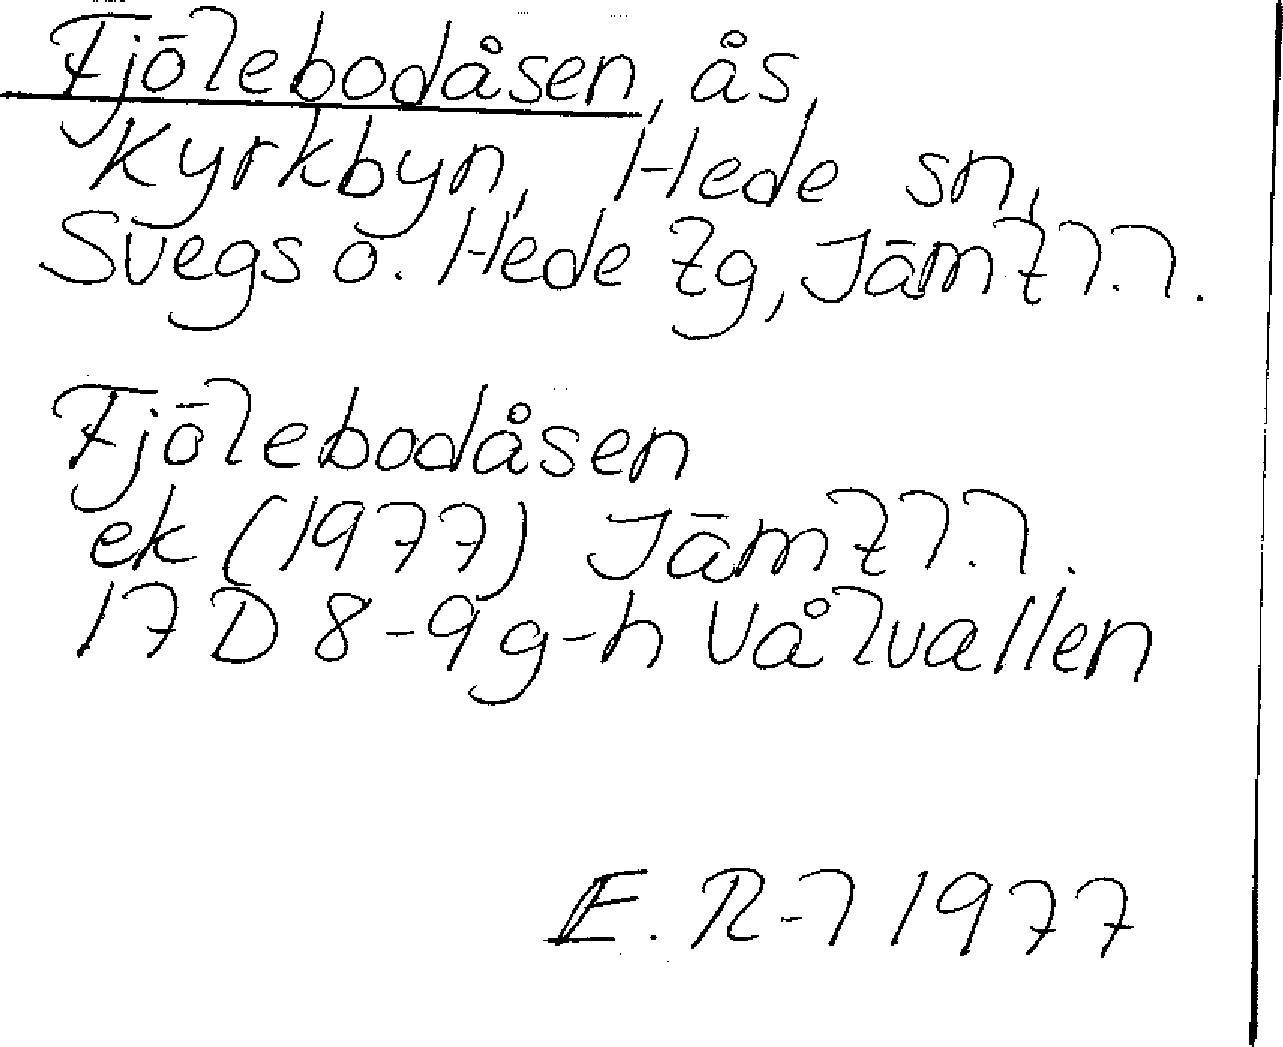 Fjölebodåsen, ås,
Kyrkbyn, Hede sn,
Svegs o. Hede tg, Jämtl.l.
Fjölebodåsen
ek (1977) Jämtl.l.
17D 8-9g-h Vålvallen
E.R-l 1977